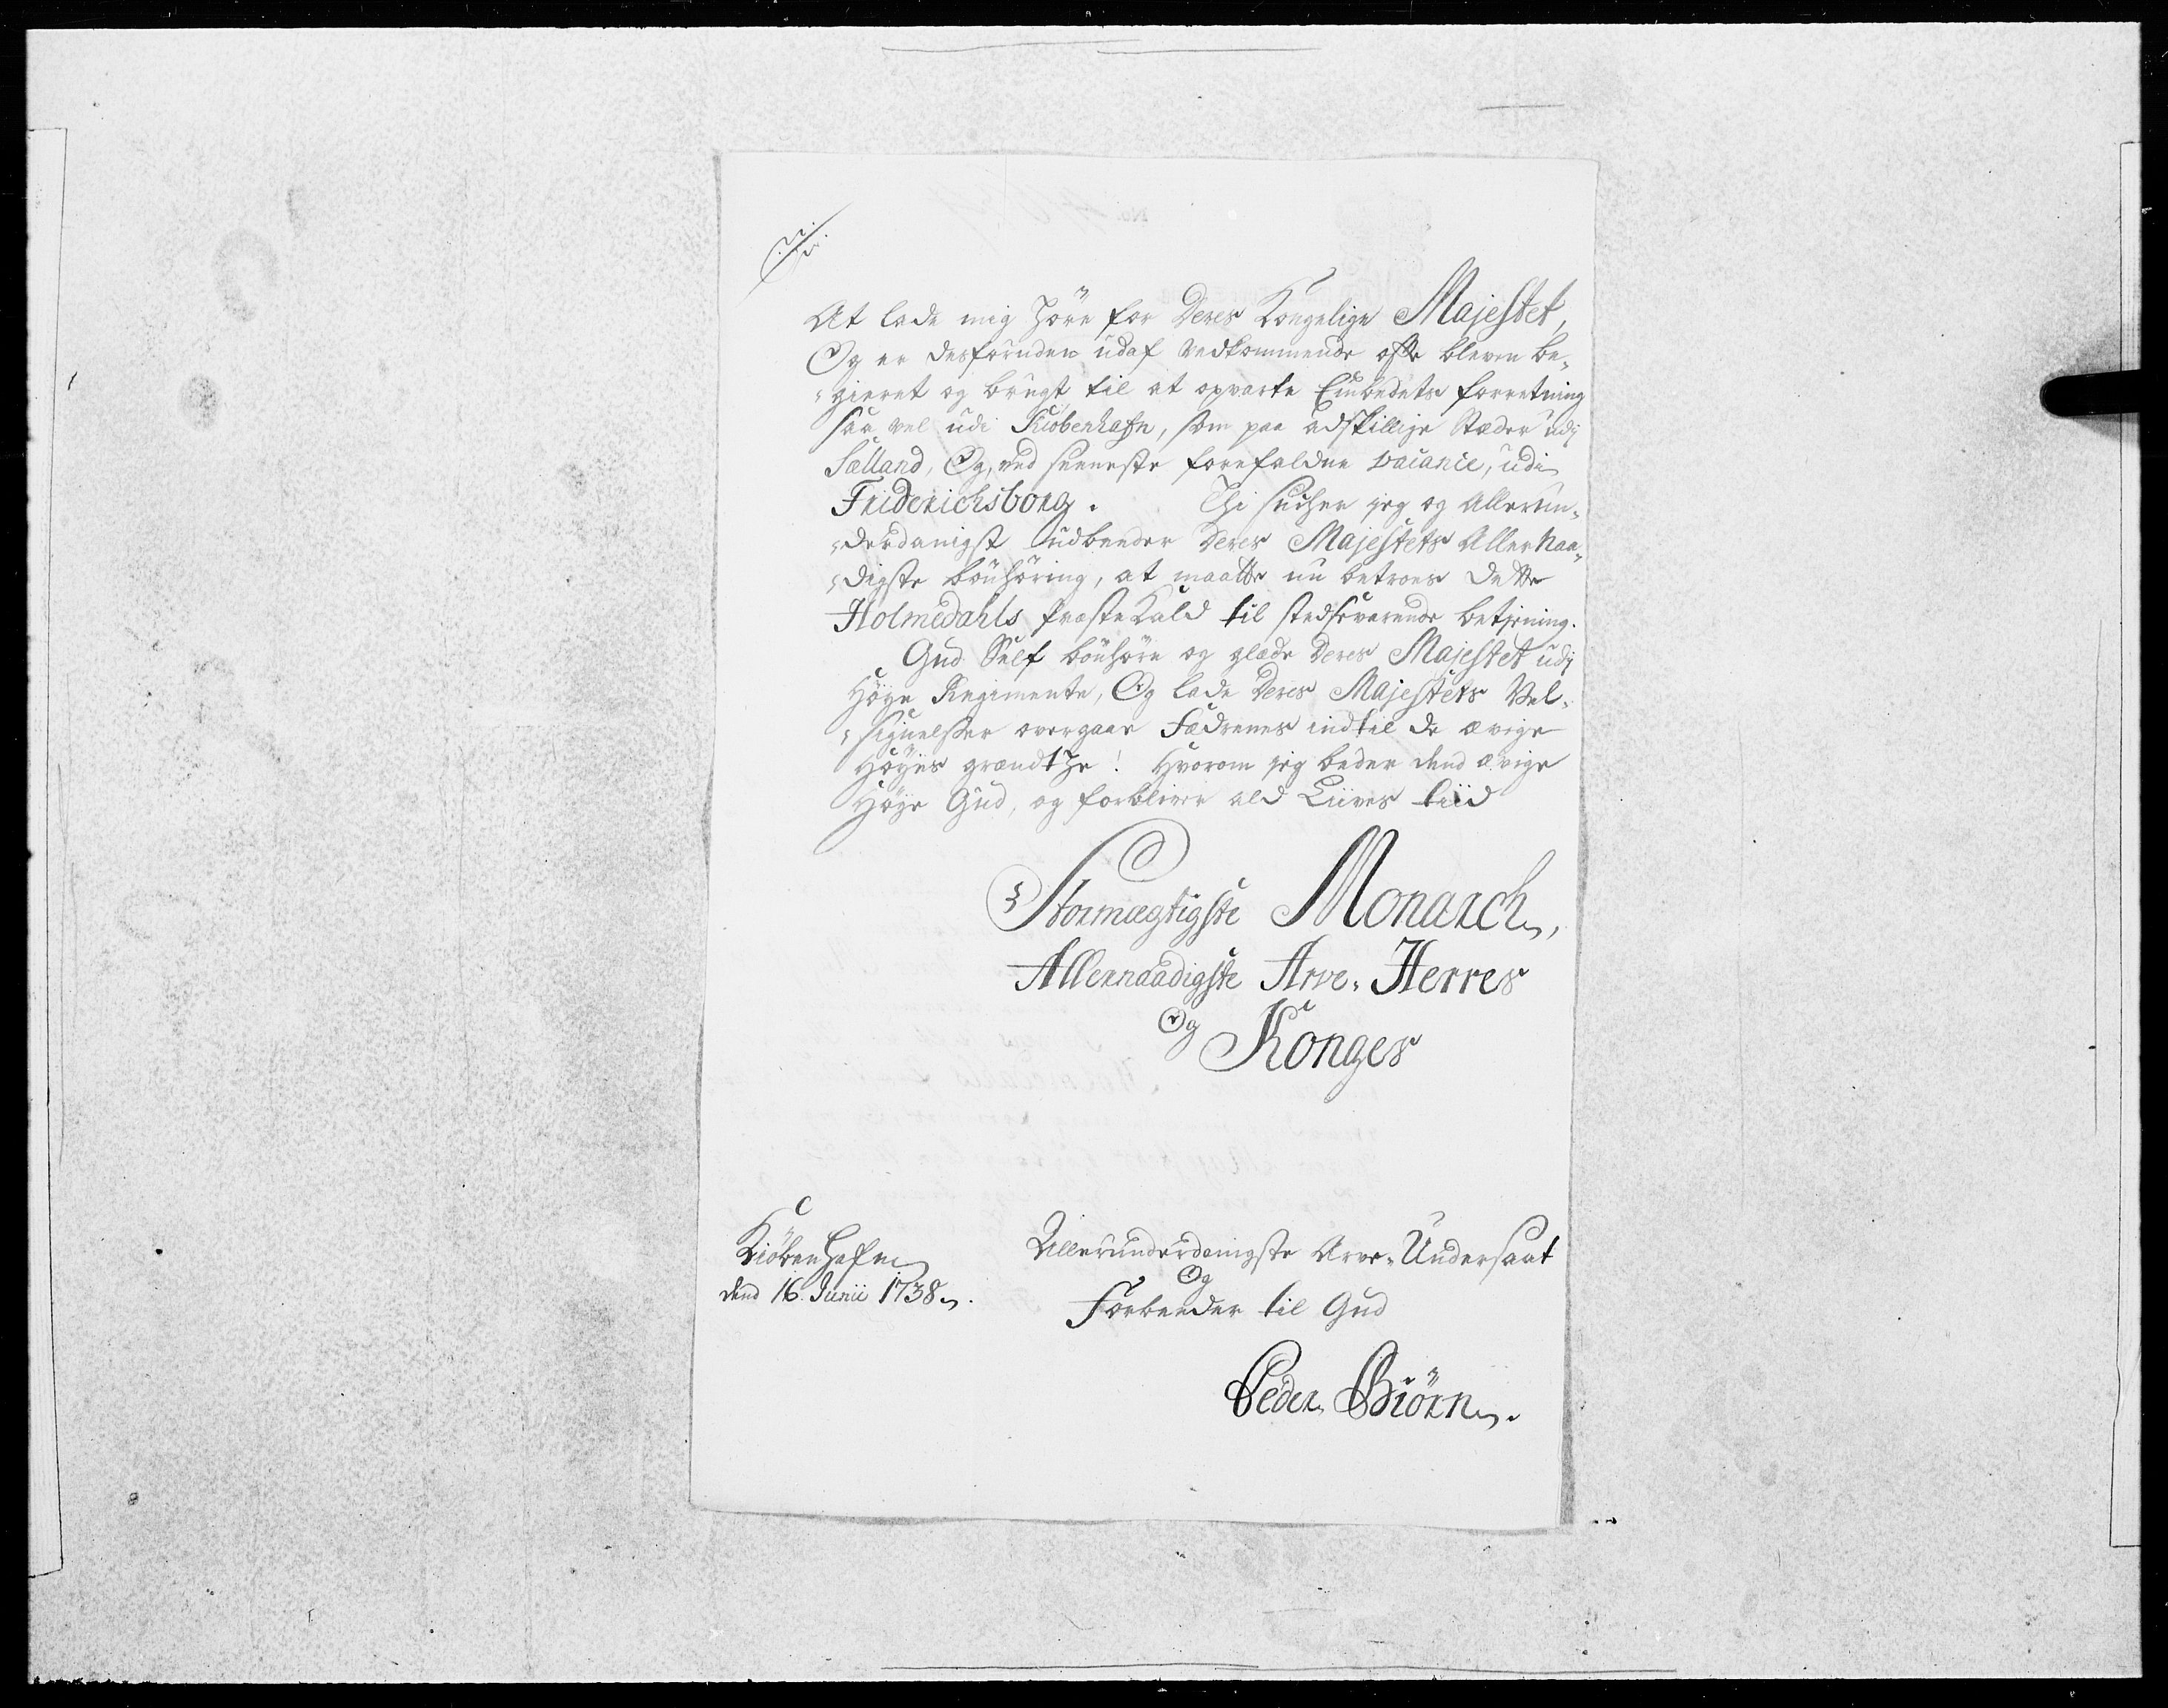 At lade mig höre for Deres Kongelige Majestet,
Og er desforuden udaf vedkommende ofte bleven be-
-gieret og brugt til at opvarte Embedets forretning
saa vel udi Kiöbenhafn, som paa adskillige Stæder udj
Sælland, Og, ved seeneste forefaldne vacance, udi
Friderichsborg. Thi sucher jeg og Allerun-
-derdanigst udbeeder Deres Majestets Allernaa-
-digste bönhöring, at maatte nu betroes dette
Holmedahls Præste Kald til stedsevarende betjening.
Gud Self bönhöre og glæde Deres Majestet udj
Höye Regimente, Og lade Deres Majestets Vel-
-signelser overgaae Fædrenes indtil de ævige
Höyes grændtze! Hvorom jeg beder dend ævige
Höye Gud, og forbliver ald Liives tiid
Stormægtigste Monarch,
Allernaadigste Arve-Herres
Og
Konges
Kiöbenhafn
dend 16. Junii 1738.
Allerunderdanigste Arve-Undersaat
Og
Forbeeder til Gud
Peder Biörn.